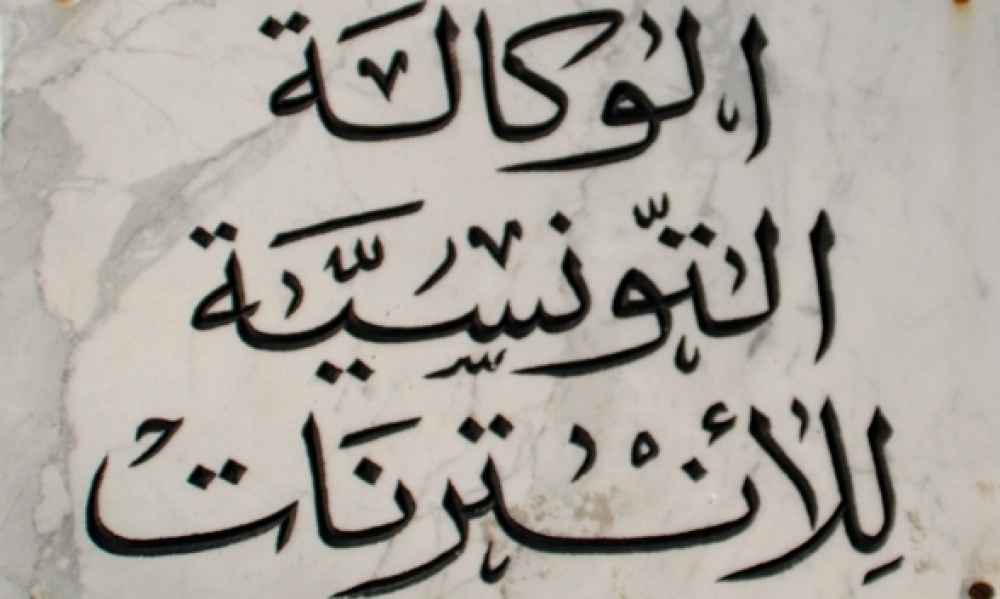 الوكالة
التّونسيّة
للأنترنات